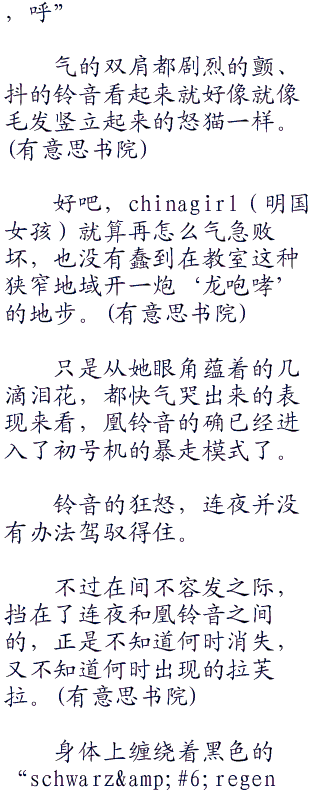 ，呼”
气的双肩都剧烈的颤、
抖的铃音看起来就好像就像
毛发竖立起来的怒猫一样。
(有意思书院)
好吧，chinagirl（明国
女孩）就算再怎么气急败
坏，也没有蠢到在教室这种
狭窄地域开一炮‘龙咆哮’
的地步。(有意思书院)
只是从她眼角蕴着的几
滴泪花，都快气哭出来的表
现来看，凰铃音的确已经进
入了初号机的暴走模式了。
铃音的狂怒，连夜并没
有办法驾驭得住。
不过在间不容发之际，
挡在了连夜和凰铃音之间
的，正是不知道何时消失，
又不知道何时出现的拉芙
拉。(有意思书院)
身体上缠绕着黑色的
“schwarz&amp;#6;regen